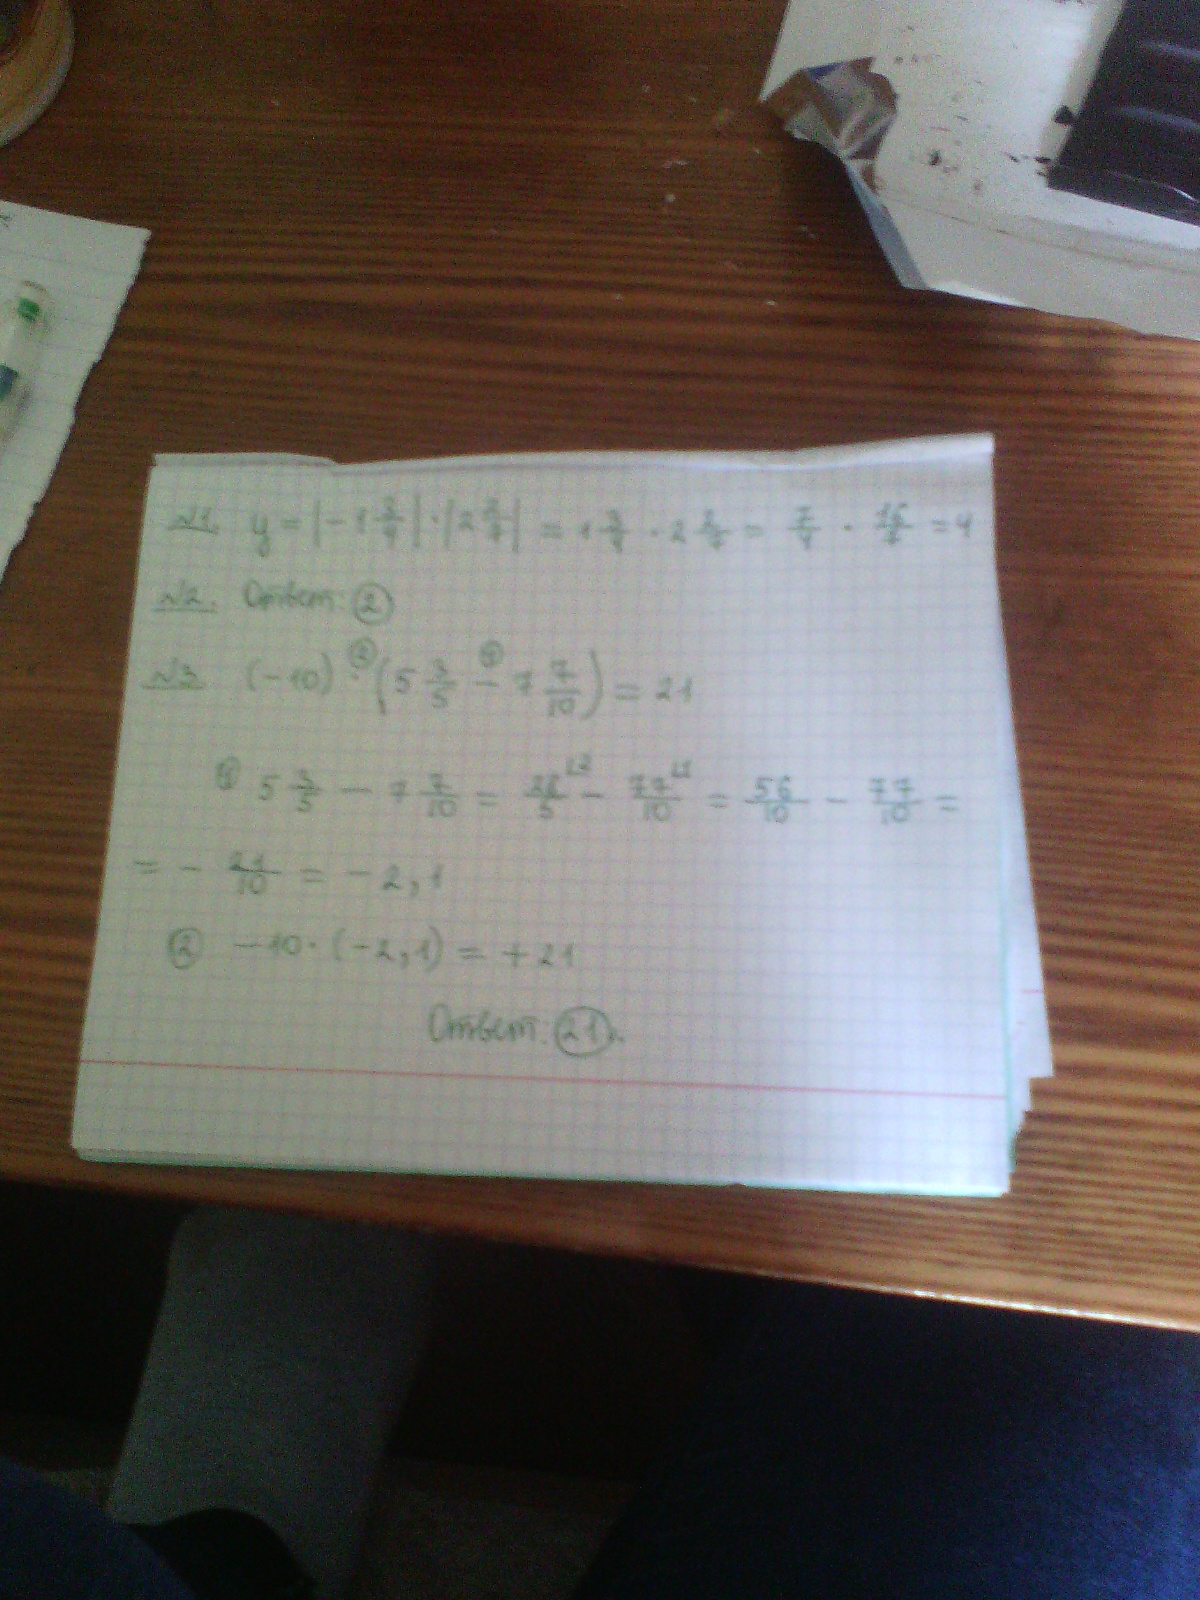 №1. y = |-1 3/4| · |2 2/7| = 1 3/4 · 2 2/7 = 7/4 · 16/7 = 4
№2. Ответ: ②
№3 (-10) ·② (5 3/5 -① 7 7/10) = 21
① 5 3/5 - 7 7/10 = 28/5 - 77/10 = 56/10 - 77/10 =
= - 21/10 = -2,1
② -10 · (-2,1) = +21
Ответ: 21.